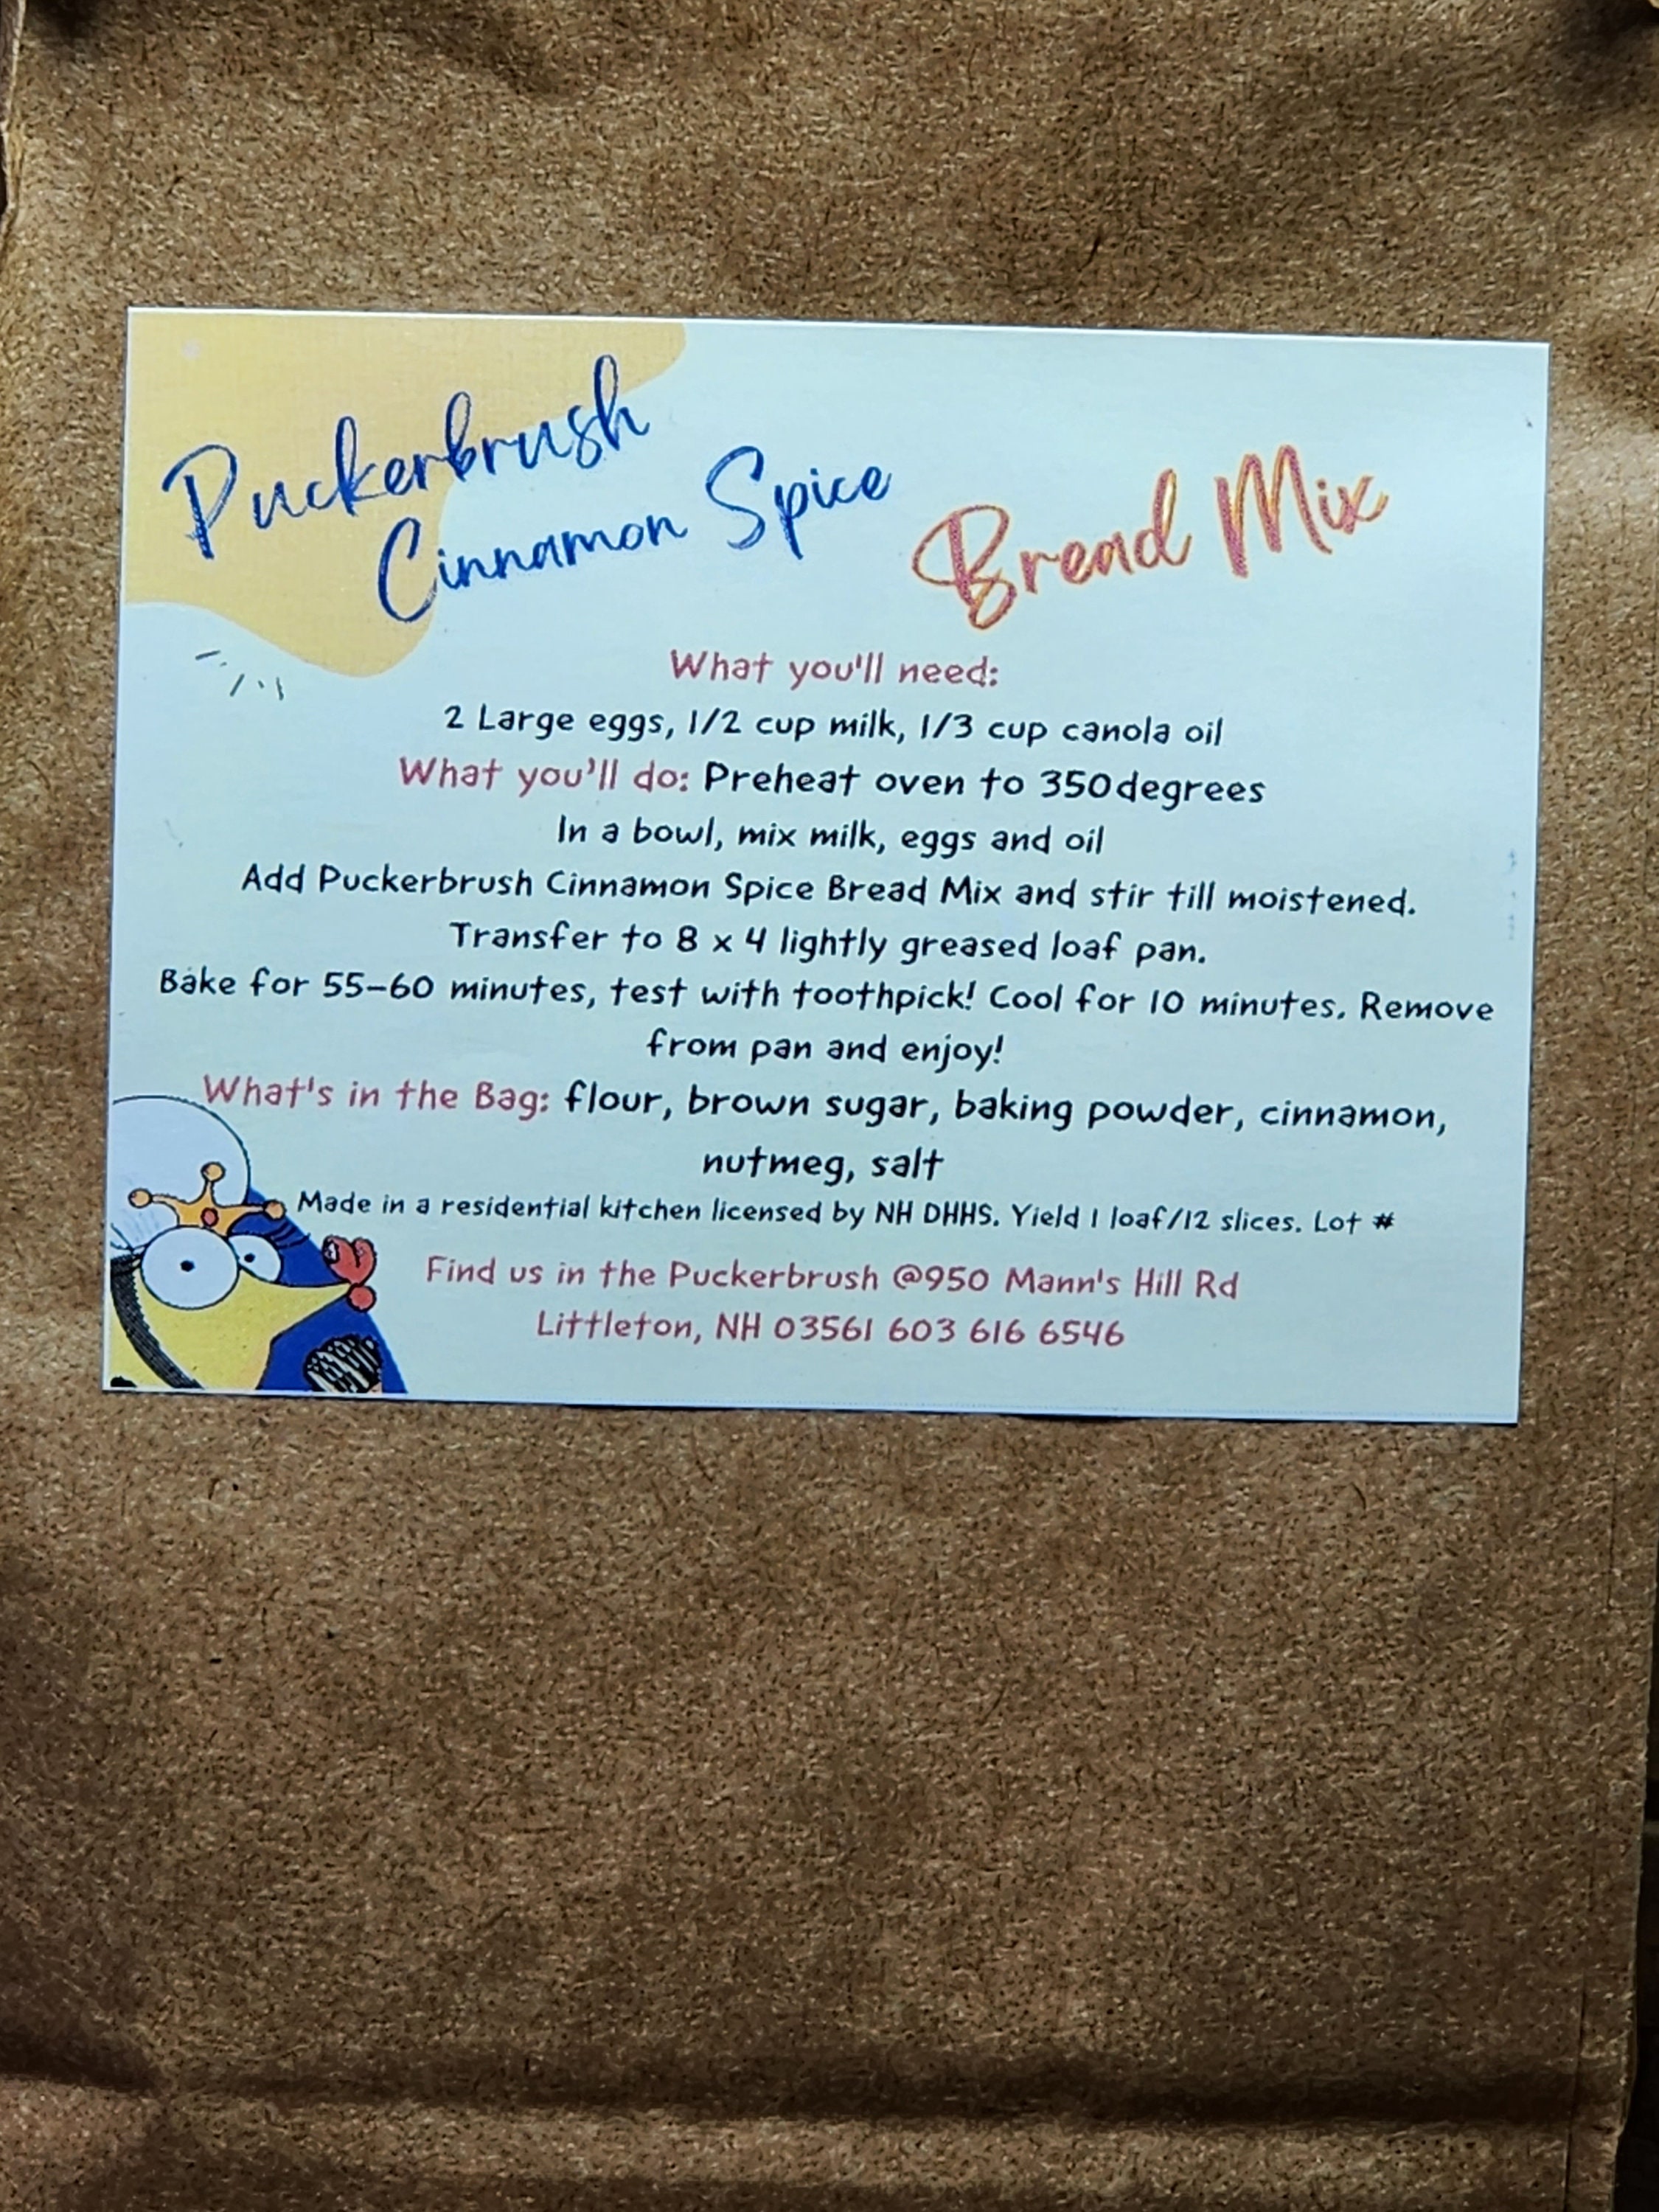 Puckerbrush
Cinnamon Spice
Bread Mix
What you'll need:
2 Large eggs, 1/2 cup milk, 1/3 cup canola oil
What you'll do: Preheat oven to 350degrees
In a bowl, mix milk, eggs and oil
Add Puckerbrush Cinnamon Spice Bread Mix and stir till moistened.
Transfer to 8 x 4 lightly greased loaf pan.
Bake for 55-60 minutes, test with toothpick! Cool for 10 minutes. Remove
from pan and enjoy!
What's in the Bag: flour, brown sugar, baking powder, cinnamon,
nutmeg, salt
Made in a residential kitchen licensed by NH DHHS. Yield 1 loaf/12 slices. Lot #
Find us in the Puckerbrush @950 Mann's Hill Rd
Littleton, NH 03561 603 616 6546